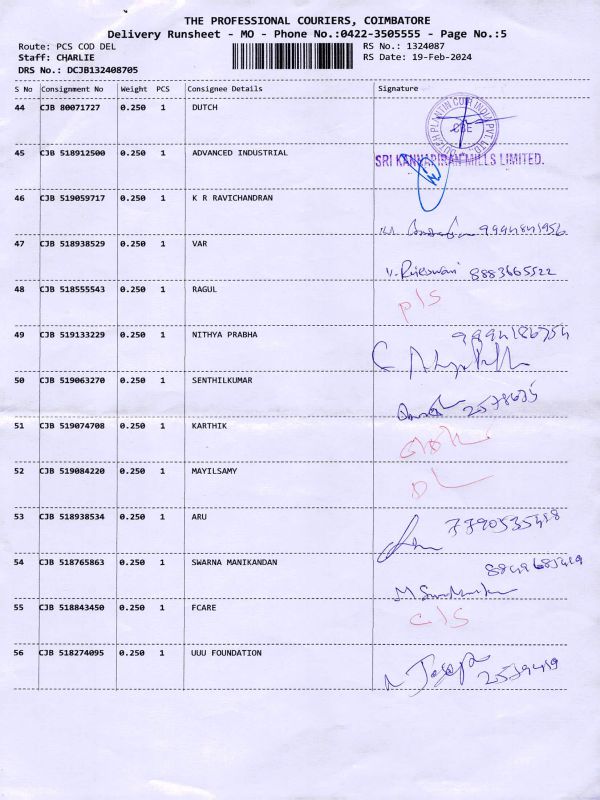 THE PROFESSIONAL COURIERS, COIMBATORE
Delivery Runsheet - MO - Phone No.:0422-3505555 - Page No.:5
Route: PCS COD DEL
RS No.: 1324087
Staff: CHARLIE
RS Date: 19-Feb-2024
DRS No.: DCJB132408705
S No Consignment No Weight PCS Consignee Details Signature
44 CJB 80071727 0.250 1 DUTCH
45 CJB 518912500 0.250 1 ADVANCED INDUSTRIAL SRI KANNAPIRAN MILLS LIMITED.
46 CJB 519059717 0.250 1 K R RAVICHANDRAN
9994841956
47 CJB 518938529 0.250 1 VAR
8883665522
48 CJB 518555543 0.250 1 RAGUL
P/S
49 CJB 519133229 0.250 1 NITHYA PRABHA
9994186754
50 CJB 519063270 0.250 1 SENTHILKUMAR
2578675
51 CJB 519074708 0.250 1 KARTHIK
52 CJB 519084220 0.250 1 MAYILSAMY
DL
53 CJB 518938534 0.250 1 ARU
54 CJB 518765863 0.250 1 SWARNA MANIKANDAN
55 CJB 518843450 0.250 1 FCARE
C/S
56 CJB 518274095 0.250 1 UUU FOUNDATION